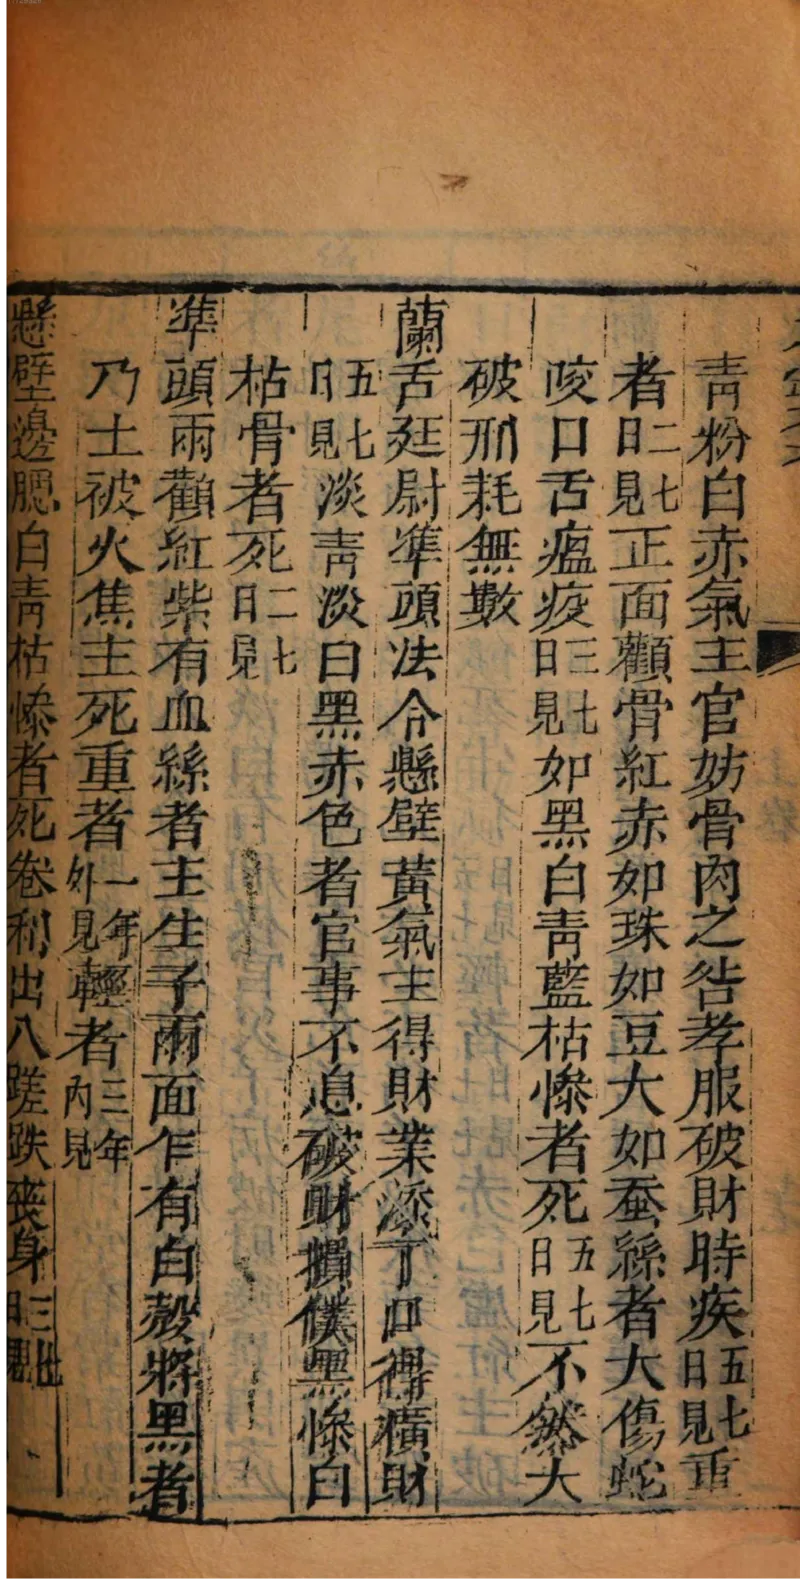 青粉白赤氣主官妨骨肉之咎孝服破財時疾五七日見重
者二七日見正面顴骨紅赤如珠如豆大如蚕絲者大傷蛇
咬口舌瘟疫三七日見如黑白青藍枯慘者死五七日見不然大
破刑耗無數
蘭台廷尉準頭法令懸壁黃氣主得財業添丁口得橫財
五七日見淡青淡白黑赤色者官事不息破財損僕黑慘白
枯骨者死二七日見
準頭兩顴紅紫有血絲者主生子兩面乍有白殼將黑者
乃土被火焦主死重者一年外見輕者三年內見
懸壁邊腮白青枯慘者死卷利出入蹉跌喪身三七日見